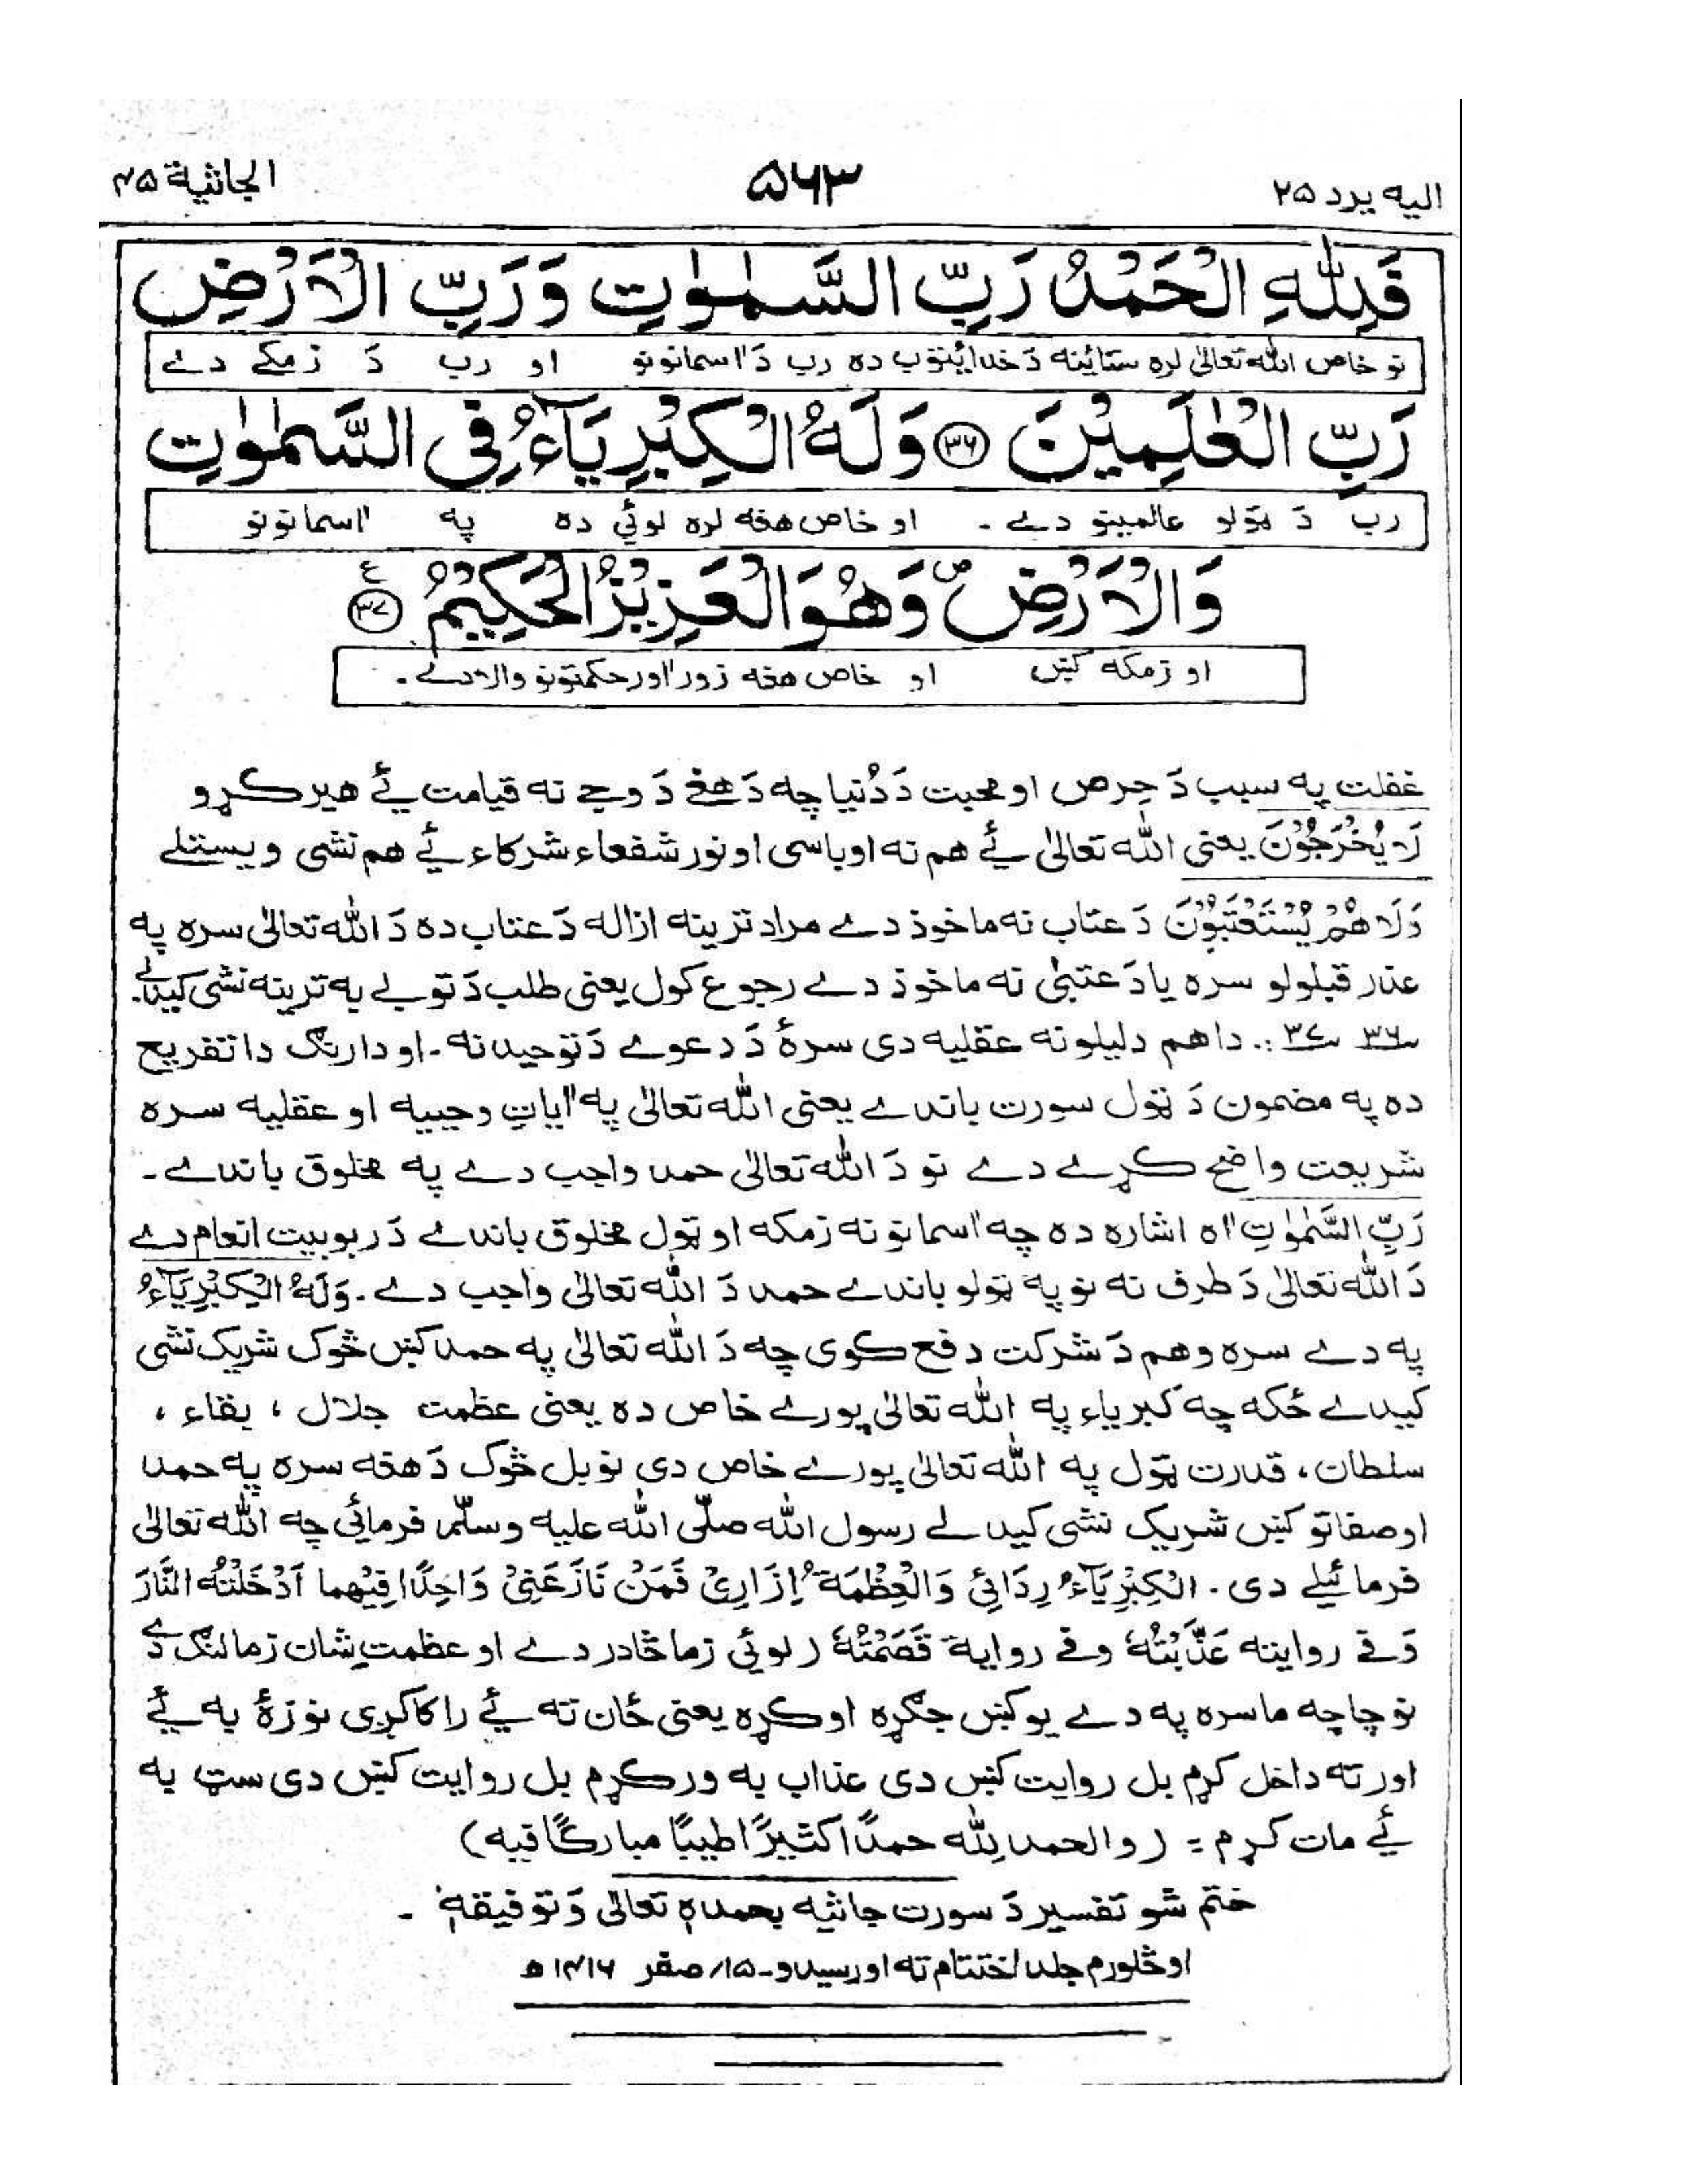 الیه یرد ۲۵
۵۶۳
الجاثیة ۴۵
فَلِلّٰهِ الْحَمْدُ رَبِّ السَّمٰوٰتِ وَرَبِّ الْاَرْضِ
نو خاص الله تعالیٰ لره ستائینه دَ خدایئتوب ده رب دَ اسمانونو او رب دَ زمکے دے
رَبِّ الْعٰلَمِیْنَ ﴿۳۶﴾ وَلَهُ الْکِبْرِیَآءُ فِی السَّمٰوٰتِ
رب دَ ټولو عالمینو دے ۔ او خاص هغه لره لوئی ده په اسمانونو
وَالْاَرْضِ ۪ وَهُوَ الْعَزِیْزُ الْحَکِیْمُ ﴿۳۷﴾ ع
او زمکه کښ او خاص هغه زور اور حکمتونو والا دے ۔
غفلت په سبب دَ حِرص او محبت دَ دُنیا چه دَ هغے دَ وجے نه قیامت ئے هیر کړو
لَا یُخْرَجُوْنَ یعنی الله تعالیٰ ئے هم نه اوباسی او نور شفعاء شرکاء ئے هم نشی ویستلے
وَلَا هُمْ یُسْتَعْتَبُوْنَ دَ عتاب نه ماخوذ دے مراد ترینه ازاله دَ عتاب ده دَ الله تعالیٰ سره په
عذر قبلولو سره یا دَ عتبیٰ نه ماخوذ دے رجوع کول یعنی طلب دَ توبے به ترینه نشی کیدلے.
۳۶ ۳۷ :. دا هم دلیلونه عقلیه دی سرهٔ دَ دعوے دَ توحید نه ـ او دارنګ دا تفریع
ده په مضمون دَ ټول سورت باندے یعنی الله تعالیٰ په اٰیاتِ وحییه او عقلیه سره
شریعت واضح کړے دے نو دَ الله تعالیٰ حمد واجب دے په مخلوق باندے ۔
رَبِّ السَّمٰوٰتِ اه اشاره ده چه اسمانونه زمکه او ټول مخلوق باندے دَ ربوبیت انعام دے
دَ الله تعالیٰ دَ طرف نه نو په ټولو باندے حمد دَ الله تعالیٰ واجب دے . وَلَهُ الْکِبْرِیَآءُ
په دے سره وهم دَ شرکت دفع کوی چه دَ الله تعالیٰ په حمد کښ څوک شریک نشی
کیدے ځکه چه کبریاء په الله تعالیٰ پورے خاص ده یعنی عظمت جلال ، بقاء ،
سلطان، قدرت ټول په الله تعالیٰ پورے خاص دی نو بل څوک دَ هغه سره په حمد
او صفاتو کښ شریک نشی کیدلے رسول الله صلّی الله علیه وسلّم فرمائی چه الله تعالیٰ
فرمائیلے دی . اَلْکِبْرِیَآءُ رِدَائِیْ وَالْعَظْمَةُ اِزَارِیْ فَمَنْ نَازَعَنِیْ وَاحِدًا فِیْهِما اَدْخَلْتُهُ النَّارَ
وَفی روایته عَذَّبْتُهٗ وفی روایة قَصَمْتُهٗ ( لوئی زما څادر دے او عظمتِ شان زما لنګ دے
نو چا چه ما سره په دے یو کښ جګړه اوکړه یعنی ځان ته ئے راکاګی نو زهٔ به ئے
اور ته داخل کړم بل روایت کښ دی عذاب به ورکړم بل روایت کښ دی سټ به
ئے مات کړم = (والحمد لِلّٰه حمدًا کثیرًا طیبًا مبارکًا فیه)
ختم شو تفسیر دَ سورت جاثیه بحمدهٖ تعالیٰ وَ توفیقهٖ ۔
او څلورم جلد اختتام ته اورسیدو ـ ۱۵/ صفر ۱۴۱۶ ھ